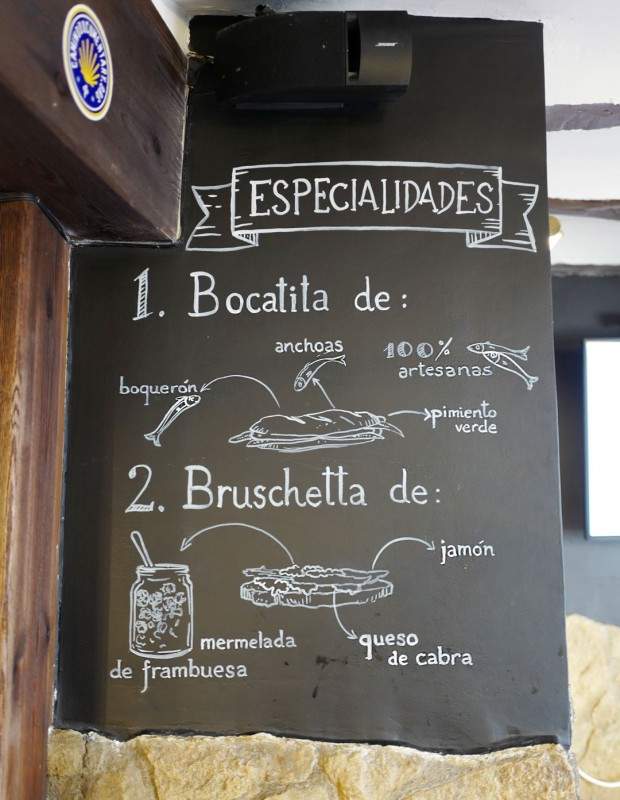 ESPECIALIDADES
1. Bocatita de:
anchoas
100%
artesanas
boquerón
pimiento
verde
2. Bruschetta de:
jamón
mermelada
de frambuesa
queso
de cabra
BOSE